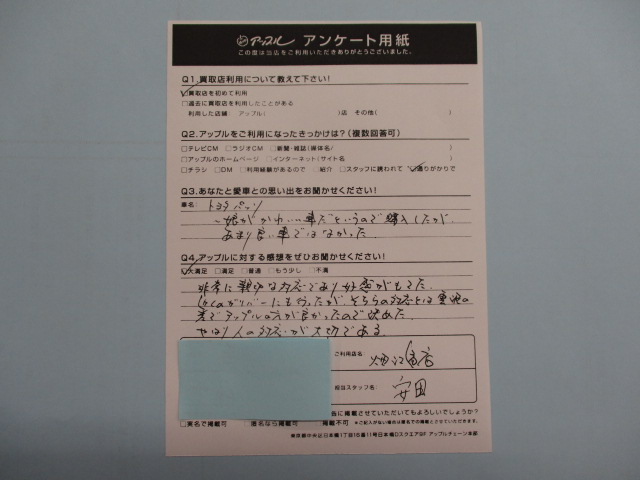 アップル アンケート用紙
この度は当店をご利用いただきありがとうございました。
Q1.買取店利用について教えて下さい!
☑買取店を初めて利用
□過去に買取店を利用したことがある
利用した店舗: アップル( )店 その他( )
Q2.アップルをご利用になったきっかけは?(複数回答可)
□テレビCM □ラジオCM □新聞・雑誌(媒体名/ )
□アップルのホームページ □インターネット(サイト名 )
□チラシ □DM □利用経験があるので □紹介 □スタッフに誘われて ☑通りがかりで
Q3.あなたと愛車との思い出をお聞かせください!
車名: トヨタパッソ
娘がかわいい車だというので購入したが
あまり良い車ではなかった
Q4.アップルに対する感想をぜひお聞かせください!
☑大満足 □満足 □普通 □もう少し □不満
非常に親切な対応であり好感がもてた。
ガリバーにも行ったが、そちらの対応とは雲泥の
差でアップルの方が良かったので決めた。
やはり人の対応が大切である。
ご利用店名:
担当スタッフ名: 安田
告に掲載させていただいてもよろしいでしょうか?
□実名で掲載可 □匿名なら掲載可 掲載不可 ※ご記入がない場合は匿名での掲載とさせていただきます。
東京都中央区日本橋1丁目16番11号日本橋Dスクエア9F アップルチェーン本部